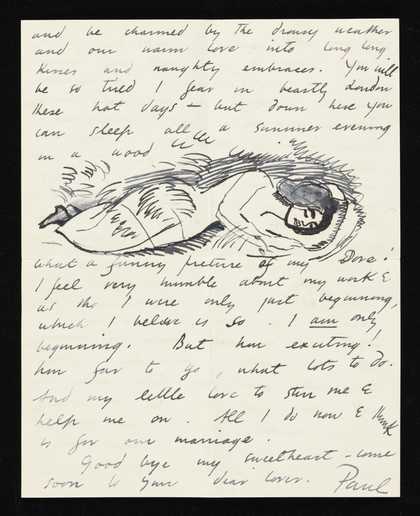 and be charmed by the drowsy weather
and our warm love into long long
kisses and naughty embraces. You will
be so tired I fear in beastly London
these hot days – but down here you
can sleep all a summer evening
in a wood
What a funny picture of my Dove!
I feel very humble about my work &
as tho' I were only just beginning,
which I believe is so. I am only
beginning. But how exciting!
how far to go, what lots to do.
And my little love to stir me &
help me on. All I do now & think
is for our marriage.
Good bye my sweetheart – come
soon to your dear lover. Paul